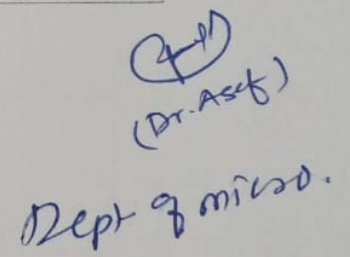 (Dr. Asef)
Dept of micro.